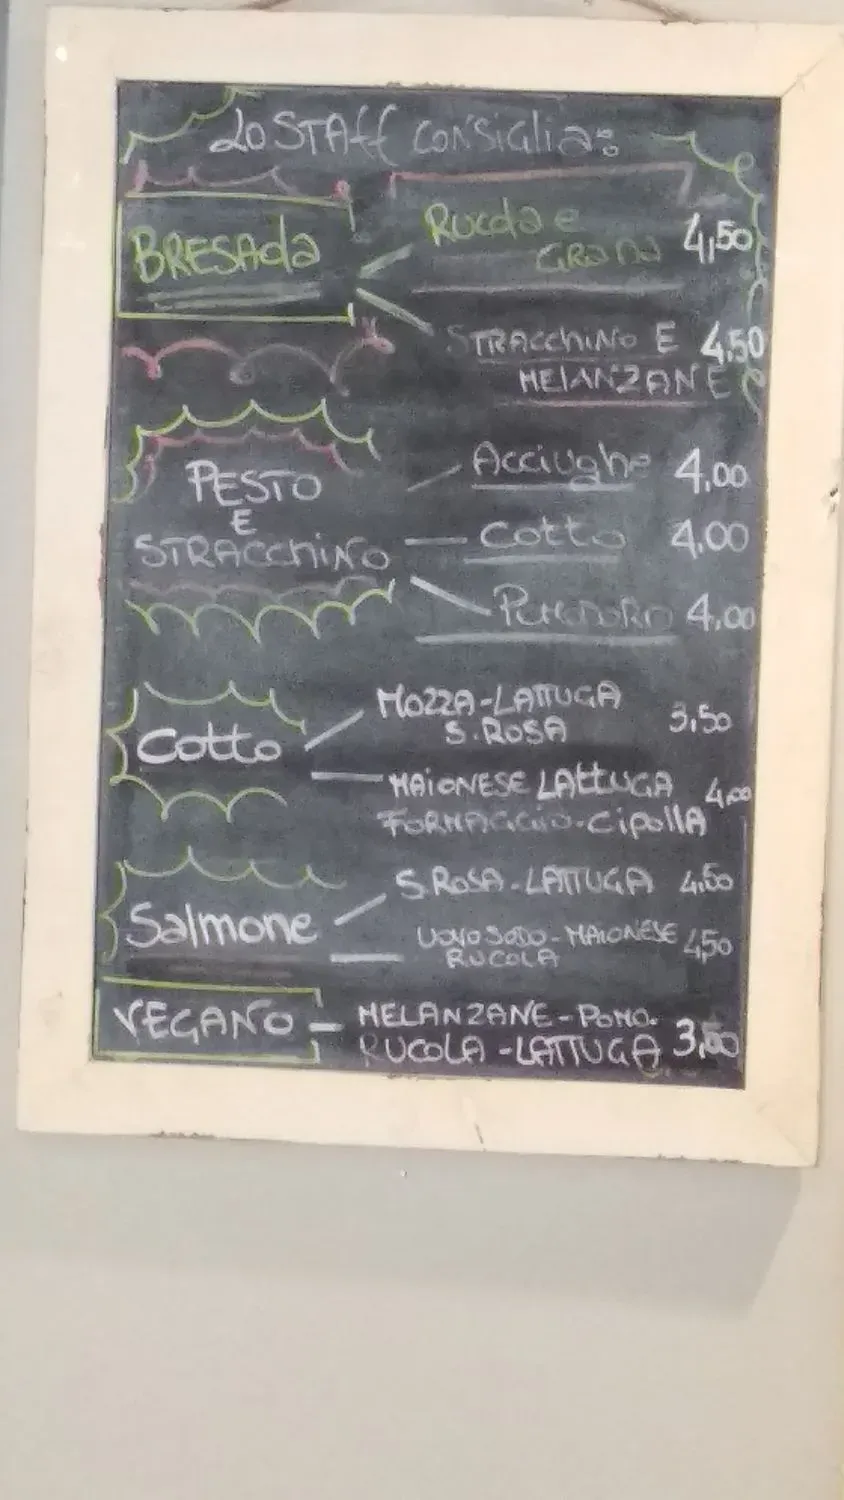 LO STAFF CONSIGLIA:
BRESAOla
Rucola e
GRANA 4,50
STRACCHINO E 4,50
MELANZANE
PESTO
E
STRACCHINO
Acciughe 4,00
Cotto 4,00
POMODORO 4,00
Cotto
MOZZA-LATTUGA
S.ROSA 3,50
MAIONESE LATTUGA 4,00
FORMAGGIO-CipollA
Salmone
S.ROSA-LATTUGA 4,50
UOVO SODO-MAIONESE 4,50
RUCOLA
VEGANO
MELANZANE-POMO.
RUCOLA-LATTUGA 3,50